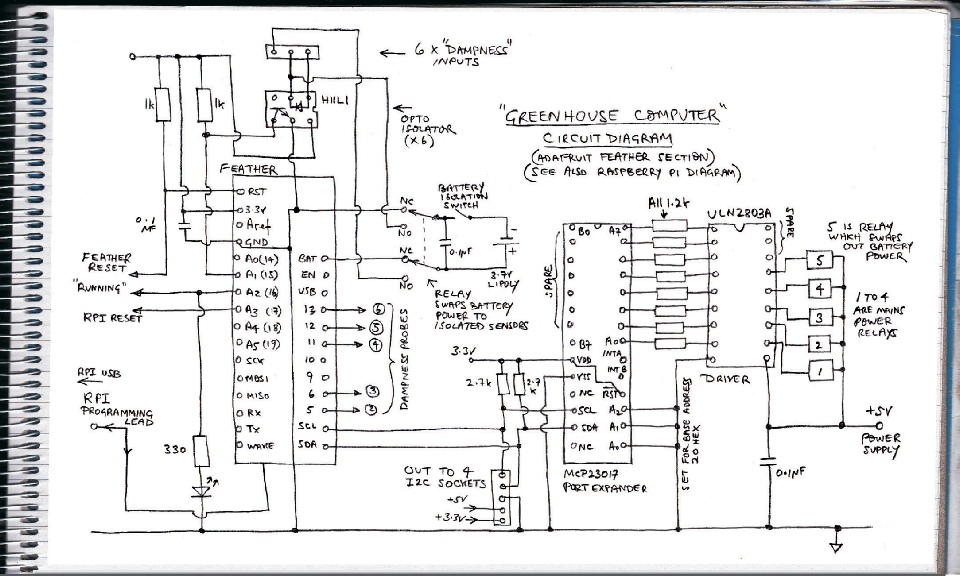 6 x "DAMPNESS"
INPUTS
1k
1k
H11L1
OPTO
ISOLATOR
(x6)
"GREENHOUSE COMPUTER"
CIRCUIT DIAGRAM
(ADAFRUIT FEATHER SECTION)
(SEE ALSO RASPBERRY PI DIAGRAM)
FEATHER
RST
3.3V
Aref
GND
A0(14)
A1(15)
A2(16)
A3(17)
A4(18)
A5(19)
SCK
MOSI
MISO
RX
TX
WAKE
BAT
EN
USB
13
12
11
10
9
6
5
SCL
SDA
6
5
4
3
2
DAMPNESS PROBES
0.1
NF
FEATHER
RESET
"RUNNING"
RPI RESET
RPI USB
RPI
PROGRAMMING
LEAD
330
NC
NO
NC
NO
BATTERY
ISOLATION
SWITCH
0.1NF
3.7V
LIPOLY
RELAY
SWAPS BATTERY
POWER TO
ISOLATED SENSORS
3.3V
2.7k
2.7
K
OUT TO 4
I2C SOCKETS
+5V
+3.3V
All 1.2k
SPARE
B0
B7
VDD
VSS
NC
SCL
SDA
NC
A7
A0
INTA
INTB
RST
A2
A1
A0
MCP23017
PORT EXPANDER
SET FOR BASE ADDRESS
20 HEX
ULN2803A
SPARE
DRIVER
5 IS RELAY
WHICH SWAPS
OUT BATTERY
POWER
5
4
3
2
1
1 TO 4
ARE MAINS
POWER
RELAYS
+5V
POWER
SUPPLY
0.1NF